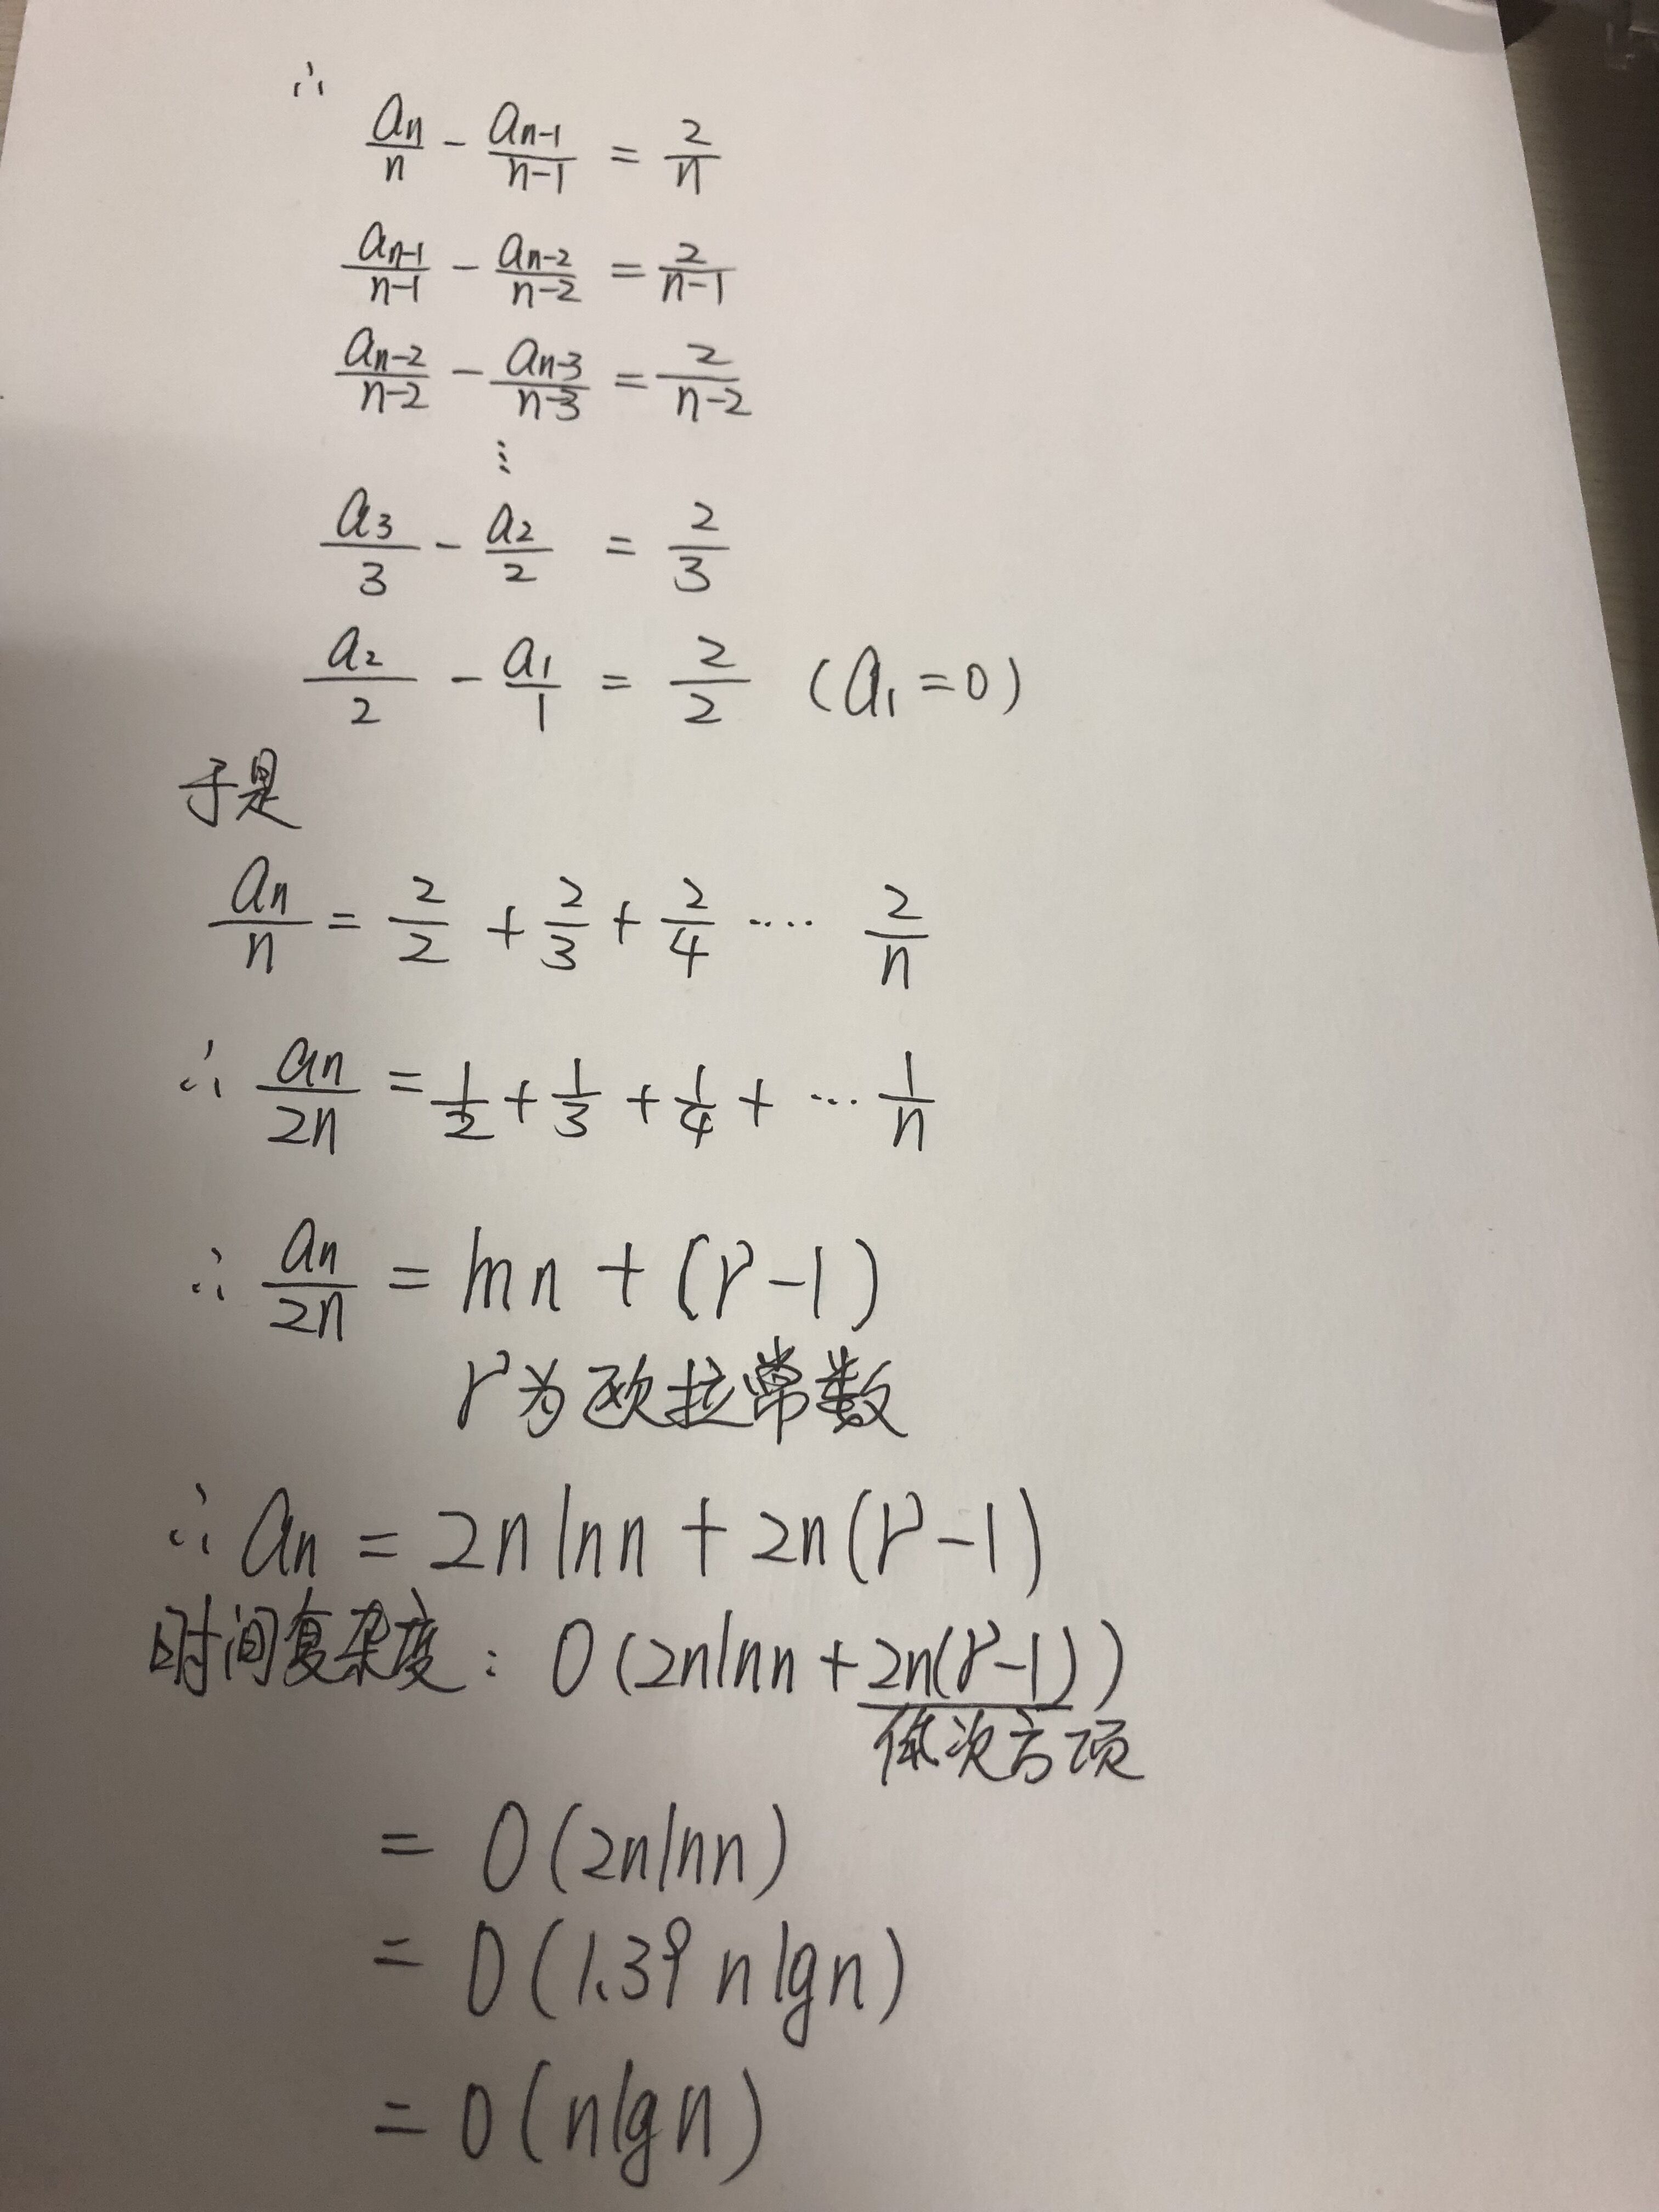 ∴
a_n/n - a_{n-1}/(n-1) = 2/n
a_{n-1}/(n-1) - a_{n-2}/(n-2) = 2/(n-1)
a_{n-2}/(n-2) - a_{n-3}/(n-3) = 2/(n-2)
⋮
a_3/3 - a_2/2 = 2/3
a_2/2 - a_1/1 = 2/2 (a_1=0)
于是
a_n/n = 2/2 + 2/3 + 2/4 ···· 2/n
∴ a_n/2n = 1/2 + 1/3 + 1/4 + ··· 1/n
∴ a_n/2n = ln n + (γ-1)
γ为欧拉常数
∴ a_n = 2n ln n + 2n(γ-1)
时间复杂度: O(2n ln n + 2n(γ-1))
低次方项
= O(2n ln n)
= O(1.39 n lg n)
= O(n lg n)